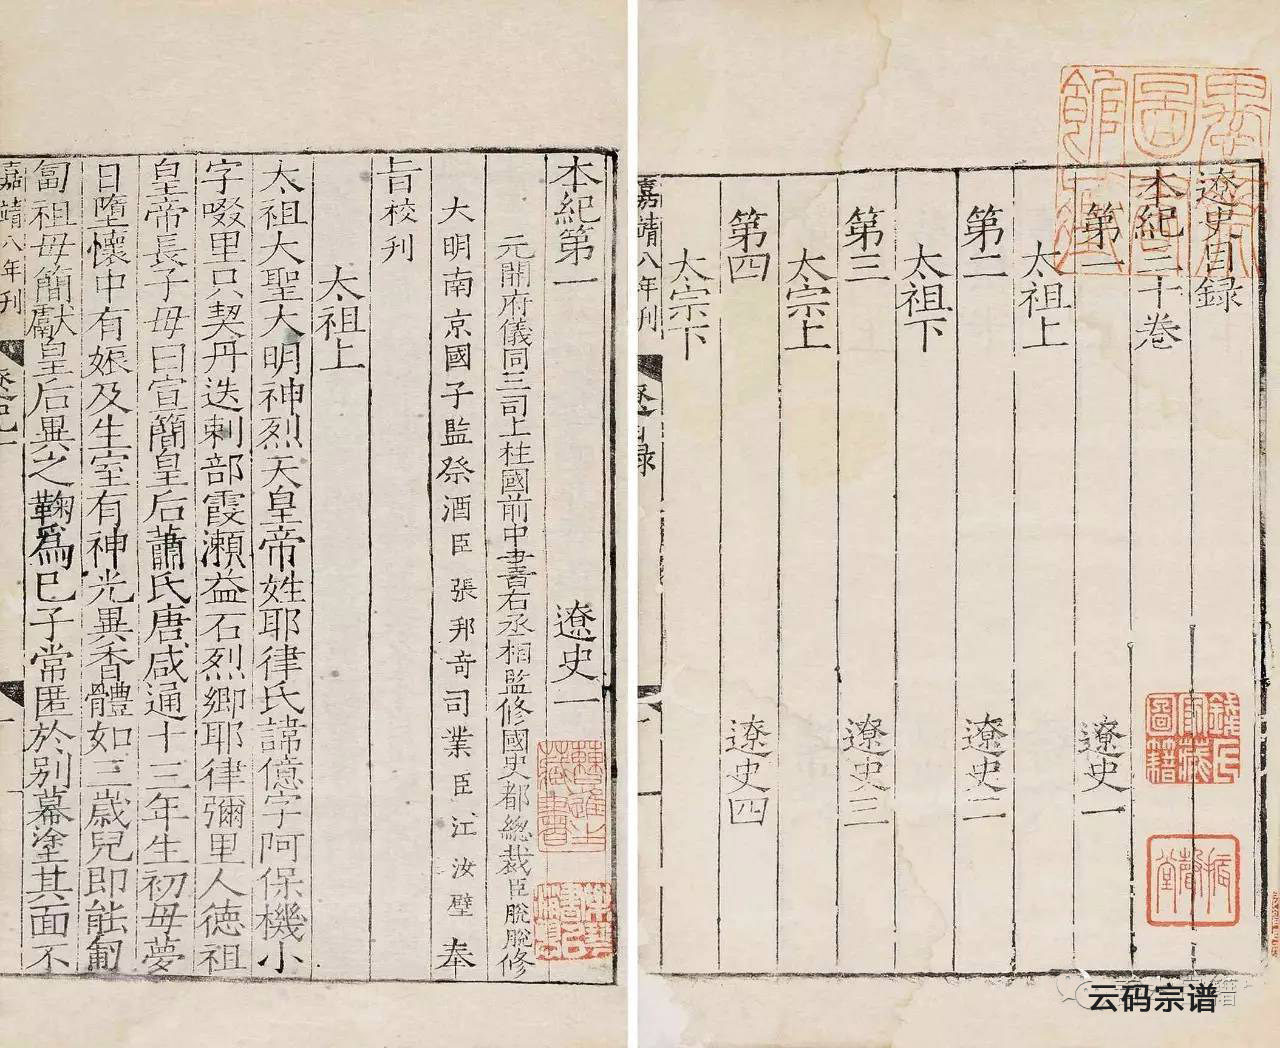 遼史目録
本紀三十卷
第一 遼史一
太祖上
第二 遼史二
太祖下
第三 遼史三
太宗上
第四 遼史四
太宗下
嘉靖八年刊
錢氏家藏圖籍
振聲堂
云码宗谱
本紀第一 遼史一
元開府儀同三司上柱國前中書右丞相監修國史都總裁臣脫脫修
大明南京國子監祭酒臣張邦奇司業臣江汝璧奉
旨校刊
太祖上
太祖大聖大明神烈天皇帝姓耶律氏諱億字阿保機小
字啜里只契丹迭剌部霞瀬益石烈郷耶律彌里人德祖
皇帝長子母曰宣簡皇后蕭氏唐咸通十三年生初母夢
日墮懷中有娠及生室有神光異香體如三歳兒即能匍
匐祖母簡獻皇后異之鞠爲己子常匿於別幕塗其面不
嘉靖八年刊